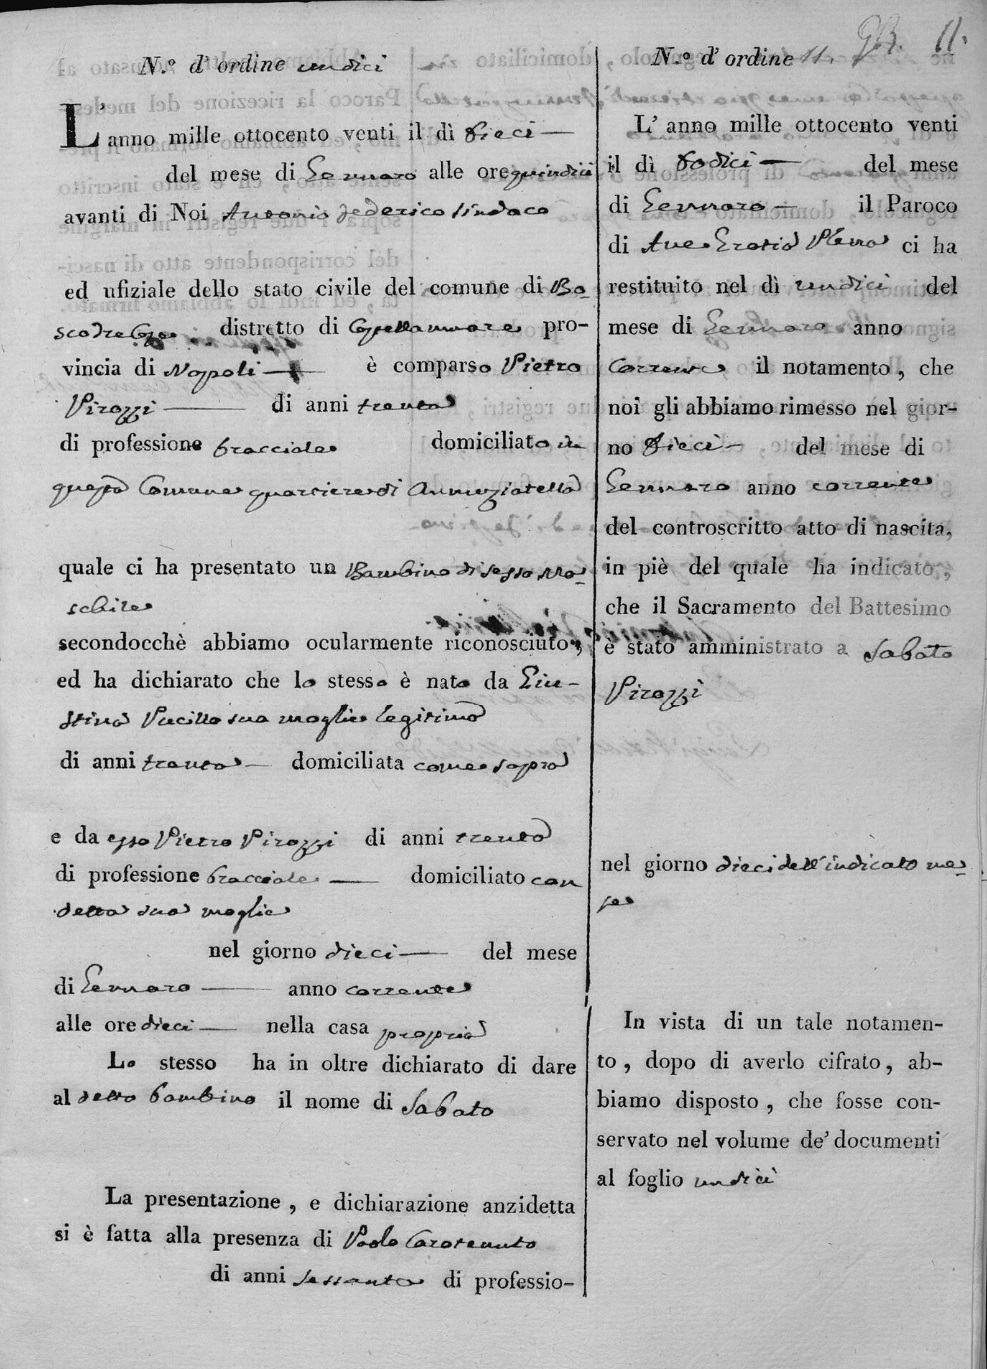 11.
N.º d' ordine undici
L' anno mille ottocento venti il dì dieci
del mese di Gennaro alle ore quindici
avanti di Noi Antonio Federico Sindaco
ed ufiziale dello stato civile del comune di Bo-
scotrecase distretto di Castellammare pro-
vincia di Napoli è comparso Pietro
Pirozzi di anni trenta
di professione bracciale domiciliato in
questa Comune quartiere di Annunziatella
quale ci ha presentato un Bambino di sesso Ma-
schile
secondocchè abbiamo ocularmente riconosciuto,
ed ha dichiarato che lo stesso è nato da Giu-
stina Pucillo sua moglie legitima
di anni trenta domiciliata come sopra
e da esso Pietro Pirozzi di anni trenta
di professione bracciale domiciliato con
detta sua moglie
nel giorno dieci del mese
di Gennaro anno corrente
alle ore dieci nella casa propria
Lo stesso ha in oltre dichiarato di dare
al detto bambino il nome di Sabato
La presentazione, e dichiarazione anzidetta
si è fatta alla presenza di Paolo Carotenuto
di anni sessanta di professio-
N.º d' ordine 11.
L' anno mille ottocento venti
il dì dodici del mese
di Gennaro il Paroco
di Ave Gratia Plena ci ha
restituito nel dì undici del
mese di Gennaro anno
Corrente il notamento, che
noi gli abbiamo rimesso nel gior-
no dieci del mese di
Gennaro anno corrente
del controscritto atto di nascita,
in piè del quale ha indicato,
che il Sacramento del Battesimo
è stato amministrato a Sabato
Pirozzi
nel giorno dieci dell'indicato me-
se
In vista di un tale notamen-
to, dopo di averlo cifrato, ab-
biamo disposto, che fosse con-
servato nel volume de' documenti
al foglio undici